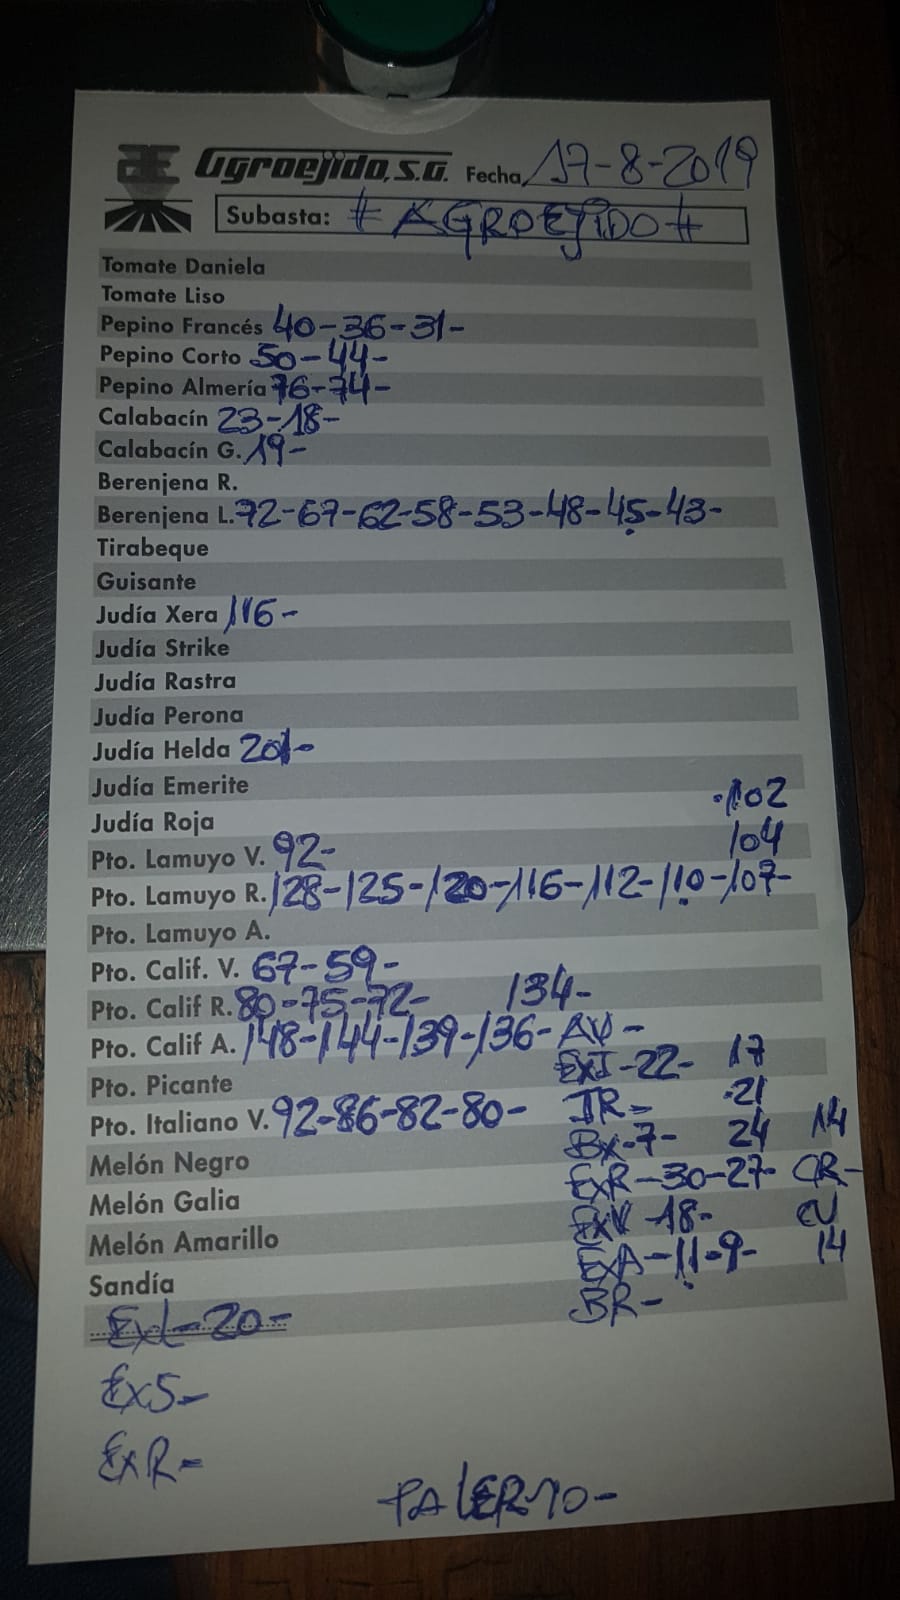 Agroejido, S.A. Fecha 17-8-2019
Subasta: # AGROEJIDO #
Tomate Daniela
Tomate Liso
Pepino Francés 40-36-31-
Pepino Corto 50-44-
Pepino Almería 76-74-
Calabacín 23-18-
Calabacín G. 19-
Berenjena R.
Berenjena L. 72-67-62-58-53-48-45-43-
Tirabeque
Guisante
Judía Xera 116-
Judía Strike
Judía Rastra
Judía Perona
Judía Helda 201-
Judía Emerite
Judía Roja
·102
104
Pto. Lamuyo V. 92-
Pto. Lamuyo R. 128-125-120-116-112-110-107-
Pto. Lamuyo A.
Pto. Calif. V. 67-59-
Pto. Calif R. 80-75-72-
134-
Pto. Calif A. 148-144-139-136-
Pto. Picante
Pto. Italiano V. 92-86-82-80-
Melón Negro
Melón Galia
Melón Amarillo
Sandía
ExL-20-
ExS-
ExR-
AV-
ExI-22- 17
JR- ·21
Bx-7- 24 14
ExR-30-27- CR-
ExV-18- CU
ExA-11-9- 14
BR-
PALERMO-